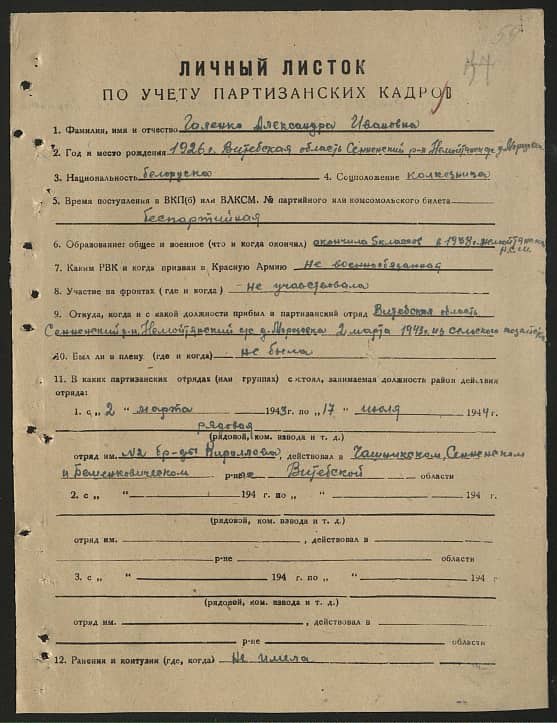 ЛИЧНЫЙ ЛИСТОК
ПО УЧЕТУ ПАРТИЗАНСКИХ КАДРОВ
1. Фамилия, имя и отчество Голенко Александра Ивановна
2. Год и место рождения 1926 г. Витебская область Сенненский р-н Немойтянский с/с д. Морозовка
3. Национальность белоруска 4. Соцположение колхозница
5. Время поступления в ВКП(б) или ВЛКСМ. № партийного или комсомольского билета
беспартийная
6. Образование: общее и военное (что и когда окончил) окончила 5 классов в 1938 г.
Н.С.Ш.
7. Каким РВК и когда призван в Красную Армию не военнообязанная
8. Участие на фронтах (где и когда) не участвовала
9. Откуда, когда и с какой должности прибыл в партизанский отряд Витебская область
Сенненский р-н Немойтянский с/с д. Морозовка 2 марта 1943 г. из сельского хозяйства
10. Был ли в плену (где и когда) не была
11. В каких партизанских отрядах (или группах) состоял, занимаемая должность район действия
отряда:
1. с „ 2 " марта 1943 г. по „ 17 " июля 1944 г.
рядовая
(рядовой, ком. взвода и т. д.)
отряд им. №2 бр-ды Кириллова, действовал в Чашникском, Сенненском
и Бешенковическом р-нах Витебской области
2. с „ " 194 г. по „ " 194 г.
(рядовой, ком. взвода и т. д.)
отряд им. , действовал в
р-не области
3. с „ " 194 г. по „ " 194 г
(рядовой, ком. взвода и т. д.)
отряд им. , действовал в
р-не области
12. Ранения и контузии (где, когда) Не имела